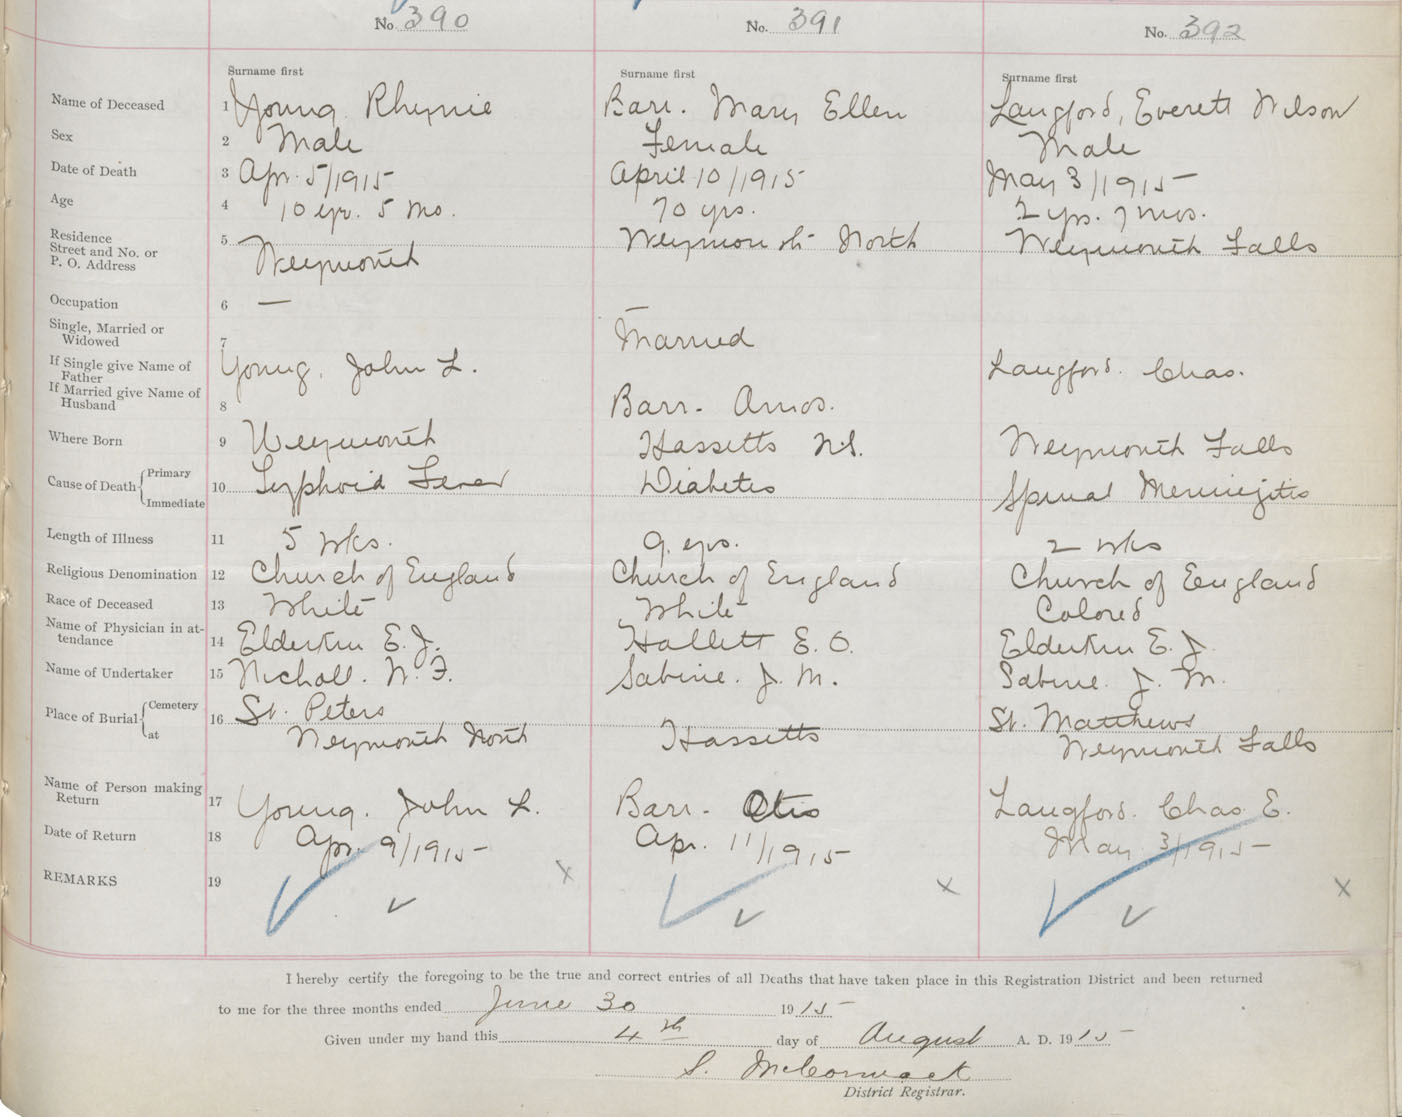 No. 390 No. 391 No. 392
Surname first Surname first Surname first
Name of Deceased 1 Young Rhynie Barr. Mary Ellen Langford, Everett Wilson
Sex 2 Male Female Male
Date of Death 3 Apr. 5/1915 April 10/1915 May 3/1915
Age 4 10 yr. 5 mo. 70 yrs. 2 yrs. 7 mos.
Residence
Street and No. or
P. O. Address 5 Weymouth Weymouth North Weymouth Falls
Occupation 6 — —
Single, Married or
Widowed 7 Married
If Single give Name of
Father Young, John L. Langford. Chas.
If Married give Name of
Husband 8 Barr. Amos.
Where Born 9 Weymouth Hassetts N.S. Weymouth Falls
Cause of Death { Primary
Immediate 10 Typhoid Fever Diabetes Spinal Meningitis
Length of Illness 11 5 wks. 9 yrs. 2 wks
Religious Denomination 12 Church of England Church of England Church of England
Race of Deceased 13 White White Colored
Name of Physician in at-
tendance 14 Elderkin E. J. Hallett E. O. Elderkin E. J.
Name of Undertaker 15 Nicholl. W. F. Sabine. J. M. Sabine. J. M.
Place of Burial { Cemetery 16 St. Peters St. Matthews
at Weymouth North Hassetts Weymouth Falls
Name of Person making
Return 17 Young. John L. Barr. Otis Langford. Chas. E.
Date of Return 18 Apr. 9/1915 Apr. 11/1915 May 3/1915
REMARKS 19
I hereby certify the foregoing to be the true and correct entries of all Deaths that have taken place in this Registration District and been returned
to me for the three months ended June 30 1915
Given under my hand this 4th day of August A. D. 1915
S. McCormack
District Registrar.